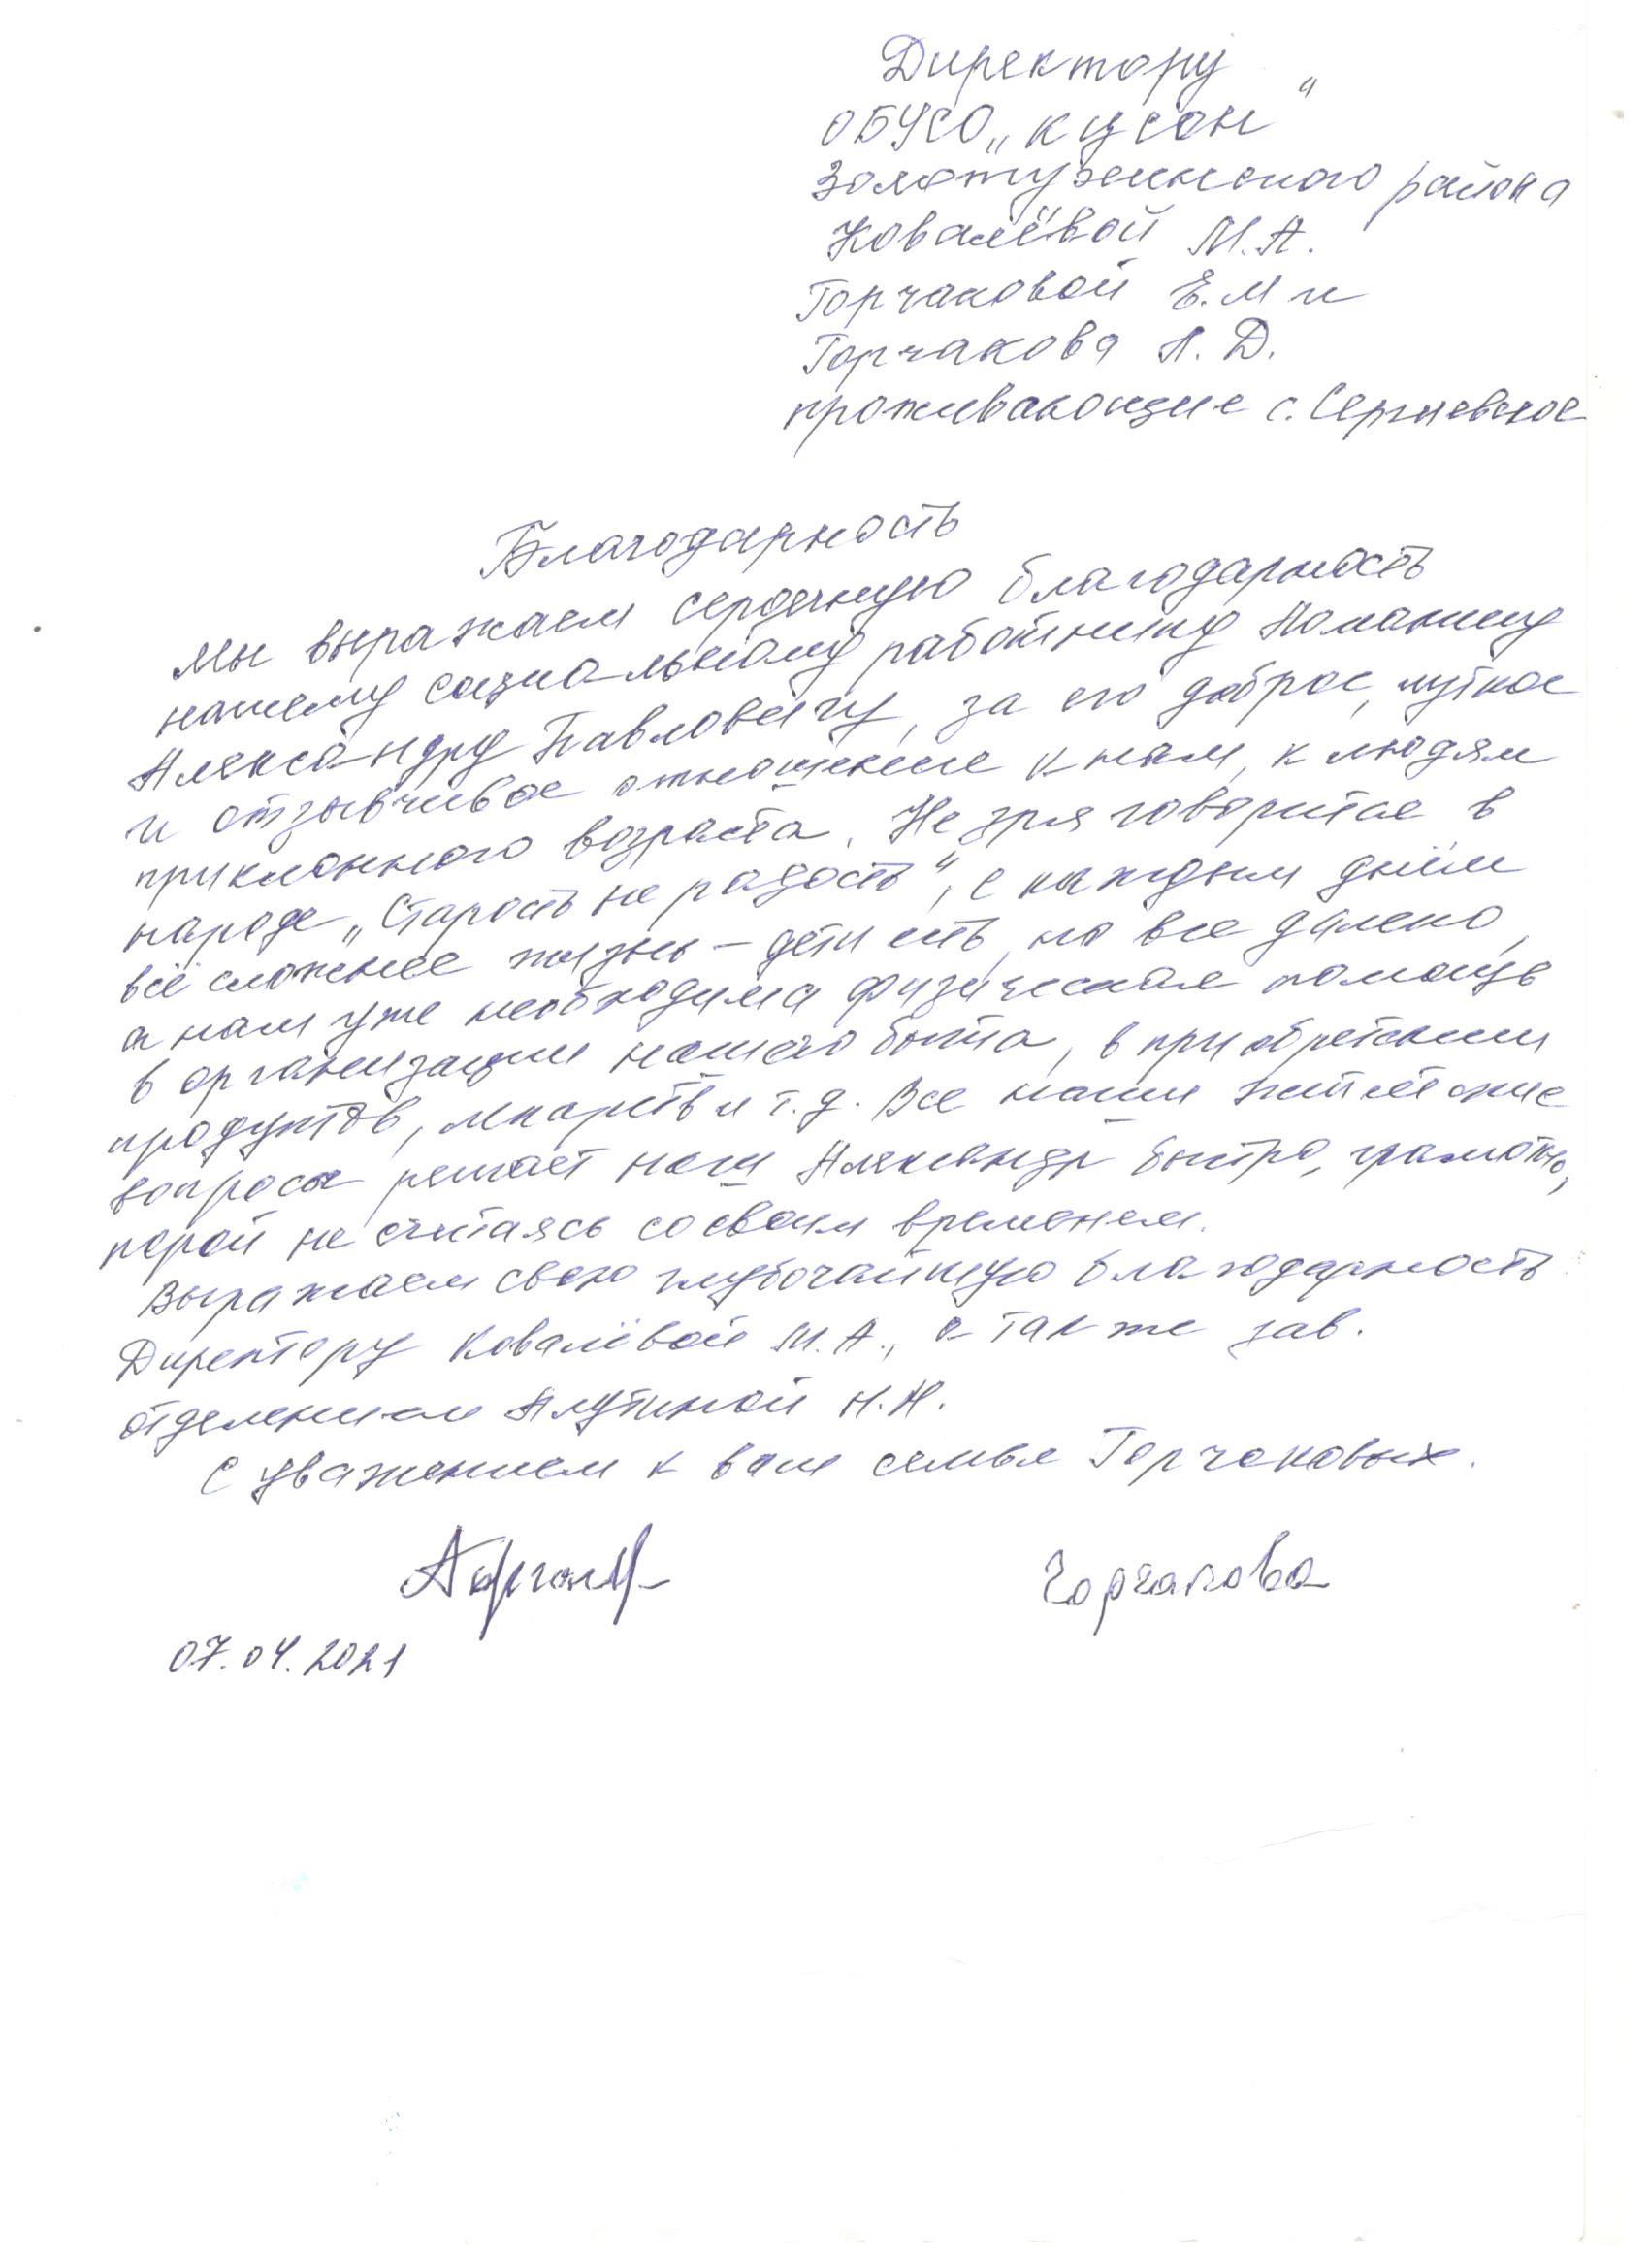 Директору
ОБУСО „КЦСОН“
Золотухинского района
Ковалёвой М.А.
Горчаковой Е.М и
Горчакова А.Д.
проживающие с. Сергиевское
Благодарность
Мы выражаем сердечную благодарность
нашему социальному работнику
Александру Павловичу, за его доброе, чуткое
и отзывчивое отношение к нам, к людям
приклонного возраста. Не зря говорится в
народе „Старость не радость“, с каждым днём
всё сложнее жизнь – дети есть, но все далеко,
а нам уже необходима физическая помощь
в организации нашего быта, в приобретении
продуктов, лекарств и т.д. Все наши житейские
вопросы решает наш Александр быстро, грамотно,
порой не считаясь со своим временем.
Выражаем свою глубочайшую благодарность
Директору Ковалёвой М.А., а также зав.
отделением Алутиной Н.Н.
С уважением к вам семья Горчаковых.
Горчакова
07.04.2021